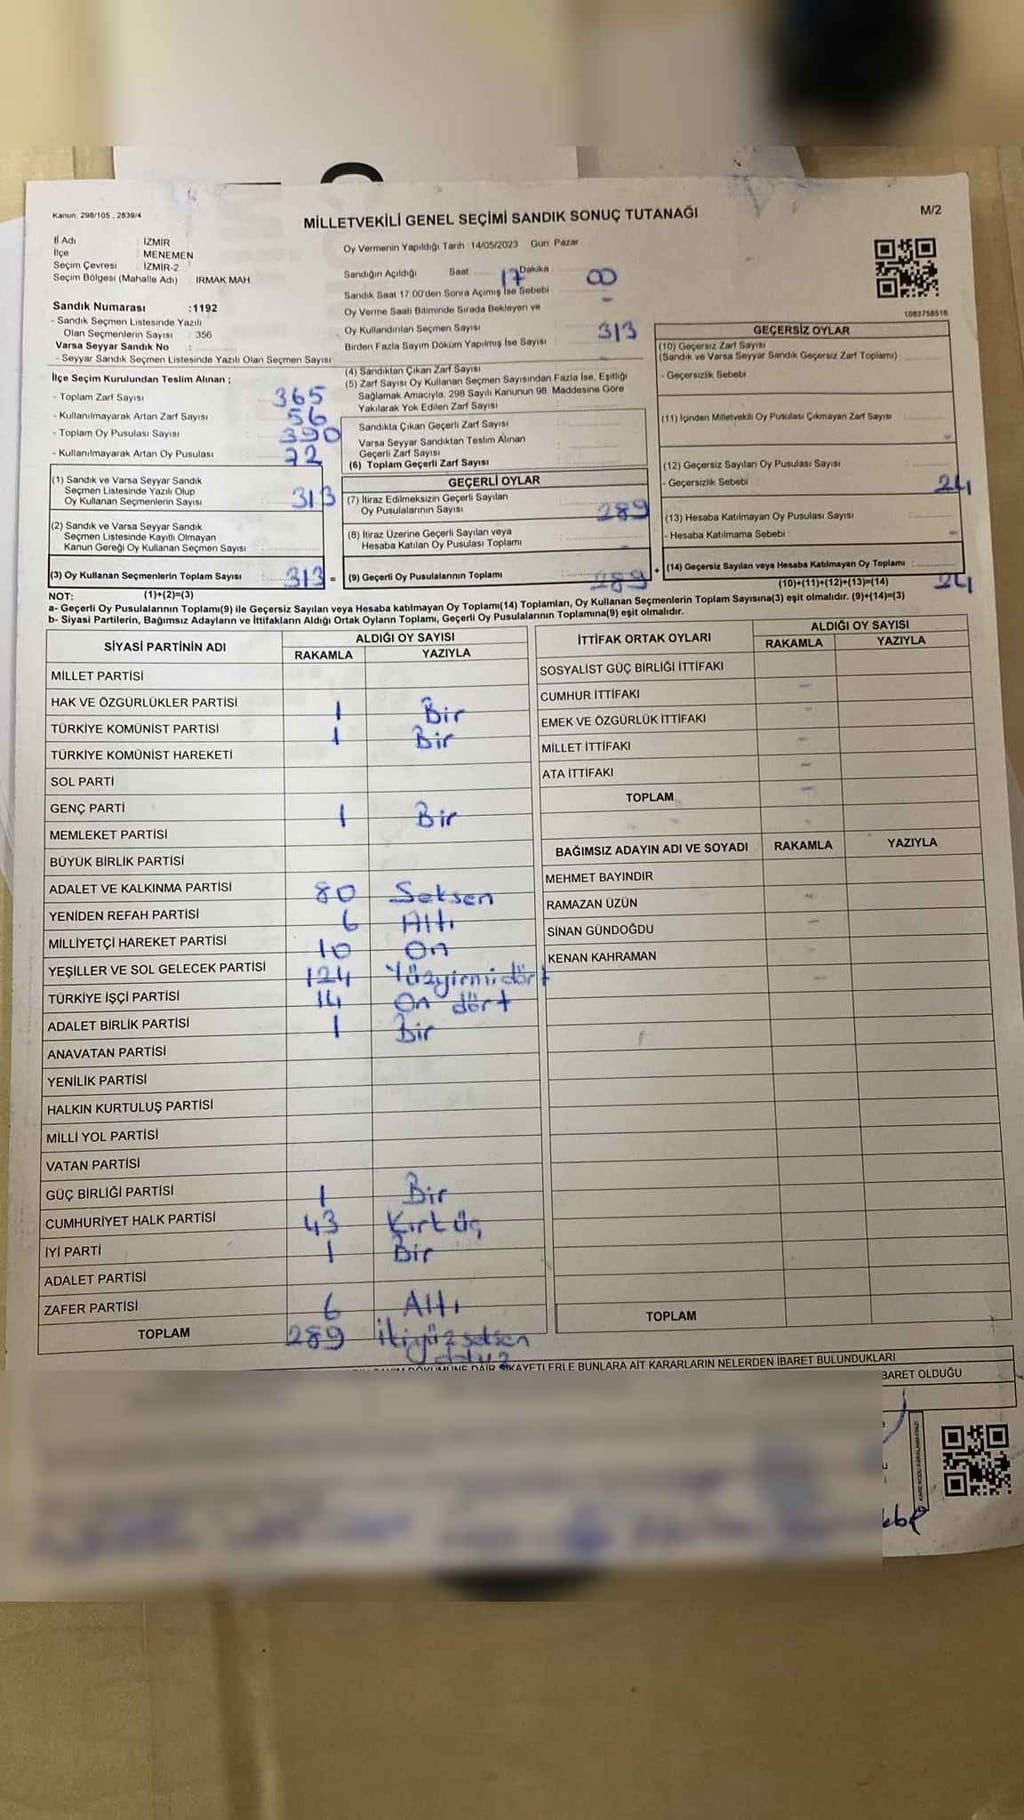 Kanun, 298/105 , 2839/4
MİLLETVEKİLİ GENEL SEÇİMİ SANDIK SONUÇ TUTANAĞI
M/2
İl Adı : İZMİR
İlçe : MENEMEN
Seçim Çevresi : İZMİR-2
Seçim Bölgesi (Mahalle Adı) : IRMAK MAH.
Sandık Numarası :1192
- Sandık Seçmen Listesinde Yazılı
Olan Seçmenlerin Sayısı : 356
Varsa Seyyar Sandık No :
- Seyyar Sandık Seçmen Listesinde Yazılı Olan Seçmen Sayısı
Oy Vermenin Yapıldığı Tarih : 14/05/2023 Gün Pazar
Sandığın Açıldığı Saat 17 Dakika 00
Sandık Saat 17.00'den Sonra Açımış İse Sebebi -
Oy Verme Saati Bitiminde Sırada Bekleyen ve
Oy Kullandırılan Seçmen Sayısı
Birden Fazla Sayım Döküm Yapılmış İse Sayısı
313
1083756516
İlçe Seçim Kurulundan Teslim Alınan ;
- Toplam Zarf Sayısı 365
- Kullanılmayarak Artan Zarf Sayısı 56
- Toplam Oy Pusulası Sayısı 390
- Kullanılmayarak Artan Oy Pusulası 72
(1) Sandık ve Varsa Seyyar Sandık
Seçmen Listesinde Yazılı Olup
Oy Kullanan Seçmenlerin Sayısı 313
(2) Sandık ve Varsa Seyyar Sandık
Seçmen Listesinde Kayıtlı Olmayan
Kanun Gereği Oy Kullanan Seçmen Sayısı
(3) Oy Kullanan Seçmenlerin Toplam Sayısı 313 =
(1)+(2)=(3)
(4) Sandıktan Çıkan Zarf Sayısı
(5) Zarf Sayısı Oy Kullanan Seçmen Sayısından Fazla İse, Eşitliği
Sağlamak Amacıyla, 298 Sayılı Kanunun 98. Maddesine Göre
Yakılarak Yok Edilen Zarf Sayısı
Sandıkta Çıkan Geçerli Zarf Sayısı
Varsa Seyyar Sandıktan Teslim Alınan
Geçerli Zarf Sayısı
(6) Toplam Geçerli Zarf Sayısı
GEÇERLİ OYLAR
(7) İtiraz Edilmeksizin Geçerli Sayılan
Oy Pusulalarının Sayısı 289
(8) İtiraz Üzerine Geçerli Sayılan veya
Hesaba Katılan Oy Pusulası Toplamı -
(9) Geçerli Oy Pusulalarının Toplamı 289 +
GEÇERSİZ OYLAR
(10) Geçersiz Zarf Sayısı
(Sandık ve Varsa Seyyar Sandık Geçersiz Zarf Toplamı)
- Geçersizlik Sebebi
(11) İçinden Milletvekili Oy Pusulası Çıkmayan Zarf Sayısı -
(12) Geçersiz Sayılan Oy Pusulası Sayısı
- Geçersizlik Sebebi 24
(13) Hesaba Katılmayan Oy Pusulası Sayısı
- Hesaba Katılmama Sebebi -
(14) Geçersiz Sayılan veya Hesaba Katılmayan Oy Toplamı : 24
(10)+(11)+(12)+(13)=(14)
NOT:
a- Geçerli Oy Pusulalarının Toplamı(9) ile Geçersiz Sayılan veya Hesaba katılmayan Oy Toplamı(14) Toplamları, Oy Kullanan Seçmenlerin Toplam Sayısına(3) eşit olmalıdır. (9)+(14)=(3)
b- Siyasi Partilerin, Bağımsız Adayların ve İttifakların Aldığı Ortak Oyların Toplamı, Geçerli Oy Pusulalarının Toplamına(9) eşit olmalıdır.
SİYASİ PARTİNİN ADI ALDIĞI OY SAYISI
RAKAMLA YAZIYLA
MİLLET PARTİSİ
HAK VE ÖZGÜRLÜKLER PARTİSİ 1 Bir
TÜRKİYE KOMÜNİST PARTİSİ 1 Bir
TÜRKİYE KOMÜNİST HAREKETİ
SOL PARTİ
GENÇ PARTİ 1 Bir
MEMLEKET PARTİSİ
BÜYÜK BİRLİK PARTİSİ
ADALET VE KALKINMA PARTİSİ 80 Seksen
YENİDEN REFAH PARTİSİ 6 Altı
MİLLİYETÇİ HAREKET PARTİSİ 10 On
YEŞİLLER VE SOL GELECEK PARTİSİ 124 Yüzyirmidört
TÜRKİYE İŞÇİ PARTİSİ 14 On dört
ADALET BİRLİK PARTİSİ 1 Bir
ANAVATAN PARTİSİ
YENİLİK PARTİSİ
HALKIN KURTULUŞ PARTİSİ
MİLLİ YOL PARTİSİ
VATAN PARTİSİ
GÜÇ BİRLİĞİ PARTİSİ 1 Bir
CUMHURİYET HALK PARTİSİ 43 Kırk üç
İYİ PARTİ 1 Bir
ADALET PARTİSİ
ZAFER PARTİSİ 6 Altı
TOPLAM 289 İkiyüzseksen
dokuz
İTTİFAK ORTAK OYLARI ALDIĞI OY SAYISI
RAKAMLA YAZIYLA
SOSYALİST GÜÇ BİRLİĞİ İTTİFAKI
CUMHUR İTTİFAKI -
EMEK VE ÖZGÜRLÜK İTTİFAKI -
MİLLET İTTİFAKI -
ATA İTTİFAKI -
TOPLAM -
BAĞIMSIZ ADAYIN ADI VE SOYADI RAKAMLA YAZIYLA
MEHMET BAYINDIR
RAMAZAN ÜZÜN -
SİNAN GÜNDOĞDU -
KENAN KAHRAMAN -
TOPLAM
DÖKÜMÜNE DAİR ŞİKAYETLERLE BUNLARA AİT KARARLARIN NELERDEN İBARET BULUNDUKLARI
BARET OLDUĞU